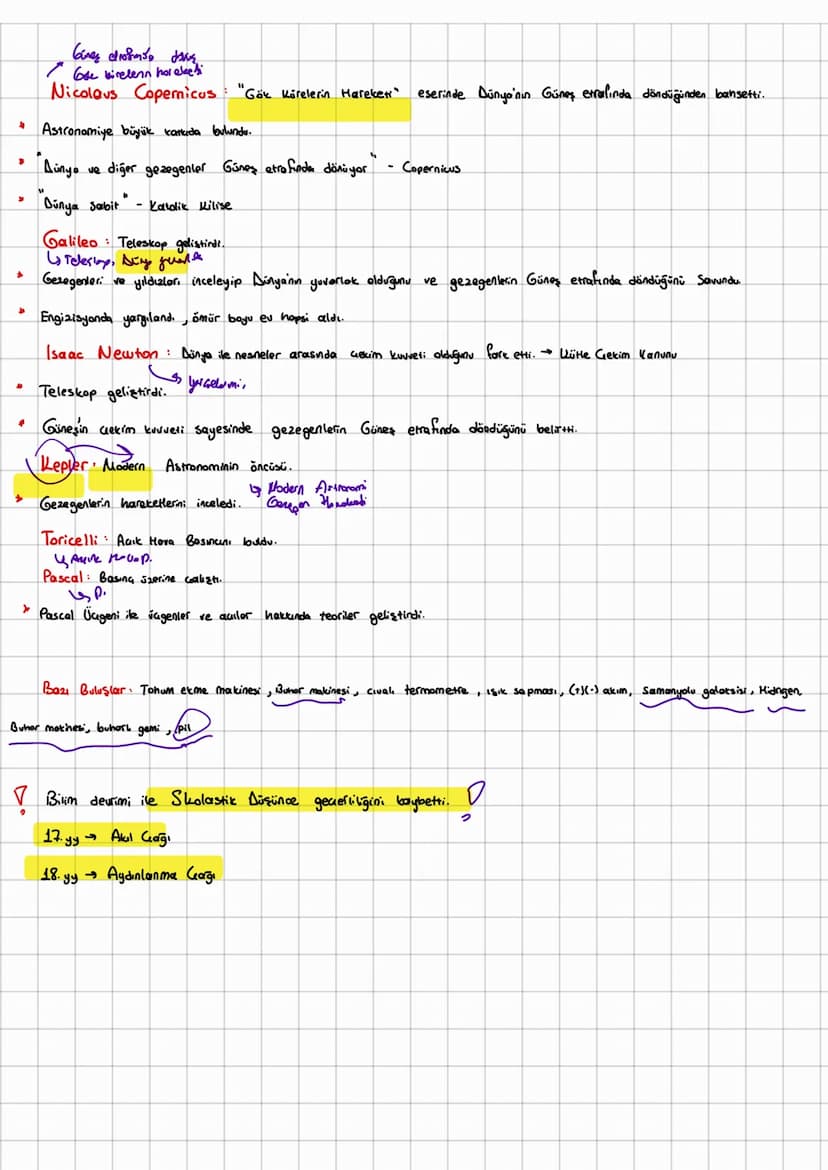 Güneş etrafında dönüş
Gök kürelerin hareketi
Nicolaus Copernicus : "Gök Kürelerin Hareketi" eserinde Dünya'nın Güneş etrafında döndüğünden bahsetti.
* Astronomiye büyük katkıda bulundu.
* "Dünya ve diğer gezegenler Güneş etrafında dönüyor" - Copernicus
* "Dünya sabit" - Katolik Kilise
Galileo : Teleskop geliştirdi.
↳ Teleskop, Düny yuvarlak
* Gezegenleri ve yıldızları inceleyip Dünya'nın yuvarlak olduğunu ve gezegenlerin Güneş etrafında döndüğünü savundu.
* Engizisyonda yargılandı, ömür boyu ev hapsi aldı.
Isaac Newton : Dünya ile nesneler arasında çekim kuvveti olduğunu fark etti. → Kütle Çekim Kanunu
↳ Yerçekimi,
* Teleskop geliştirdi.
* Güneşin çekim kuvveti sayesinde gezegenlerin Güneş etrafında döndüğünü belirtti.
Kepler : Modern Astronominin öncüsü.
↳ Modern Astronomi
* Gezegenlerin hareketlerini inceledi.
Gezegen Hareketi
Toricelli : Açık Hava Basıncını buldu.
↳ Açık Hava P.
Pascal : Basınç üzerine çalıştı.
↳ P.
* Pascal Üçgeni ile üçgenler ve açılar hakkında teoriler geliştirdi.
Bazı Buluşlar : Tohum ekme makinesi, Buhar makinesi, cıvalı termometre, ışık sapması, (+)(-) akım, Samanyolu galaksisi, Hidrojen
Buhar makinesi, buharlı gemi, pil
! Bilim devrimi ile Skolastik Düşünce geçerliliğini kaybetti. !
17.yy → Akıl Çağı
18.yy → Aydınlanma Çağı